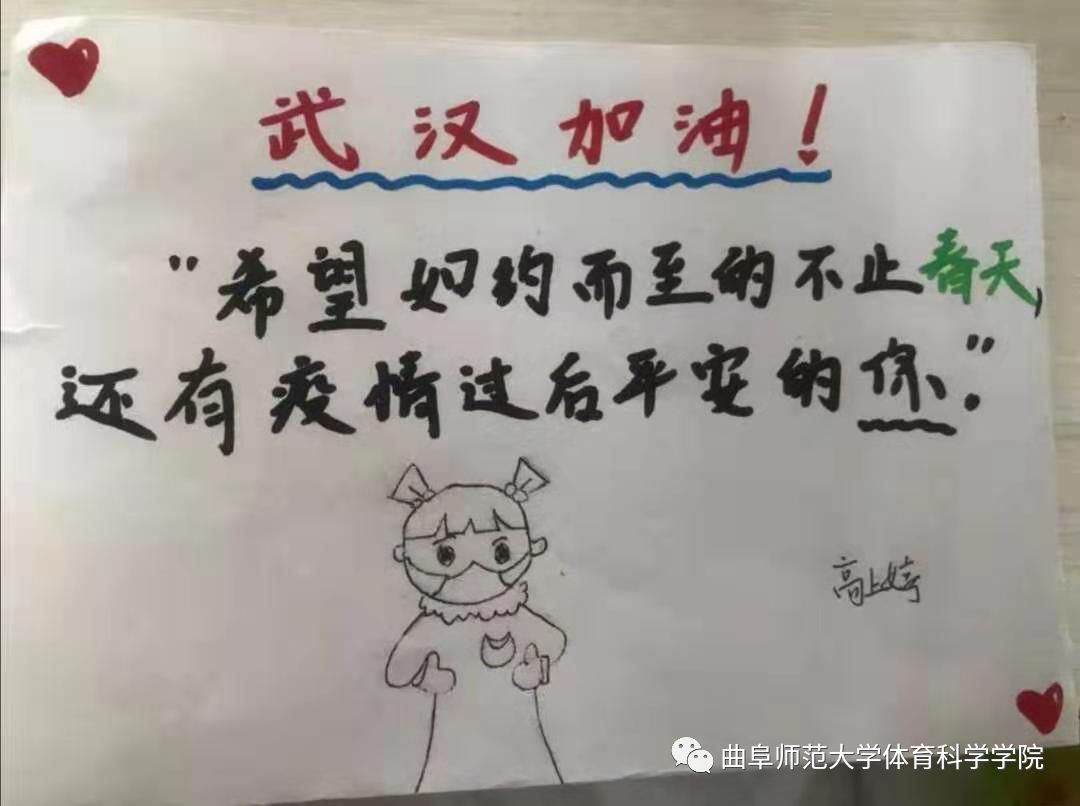 武汉加油！
“希望如约而至的不止春天，
还有疫情过后平安的你。”
高上婷
曲阜师范大学体育科学学院